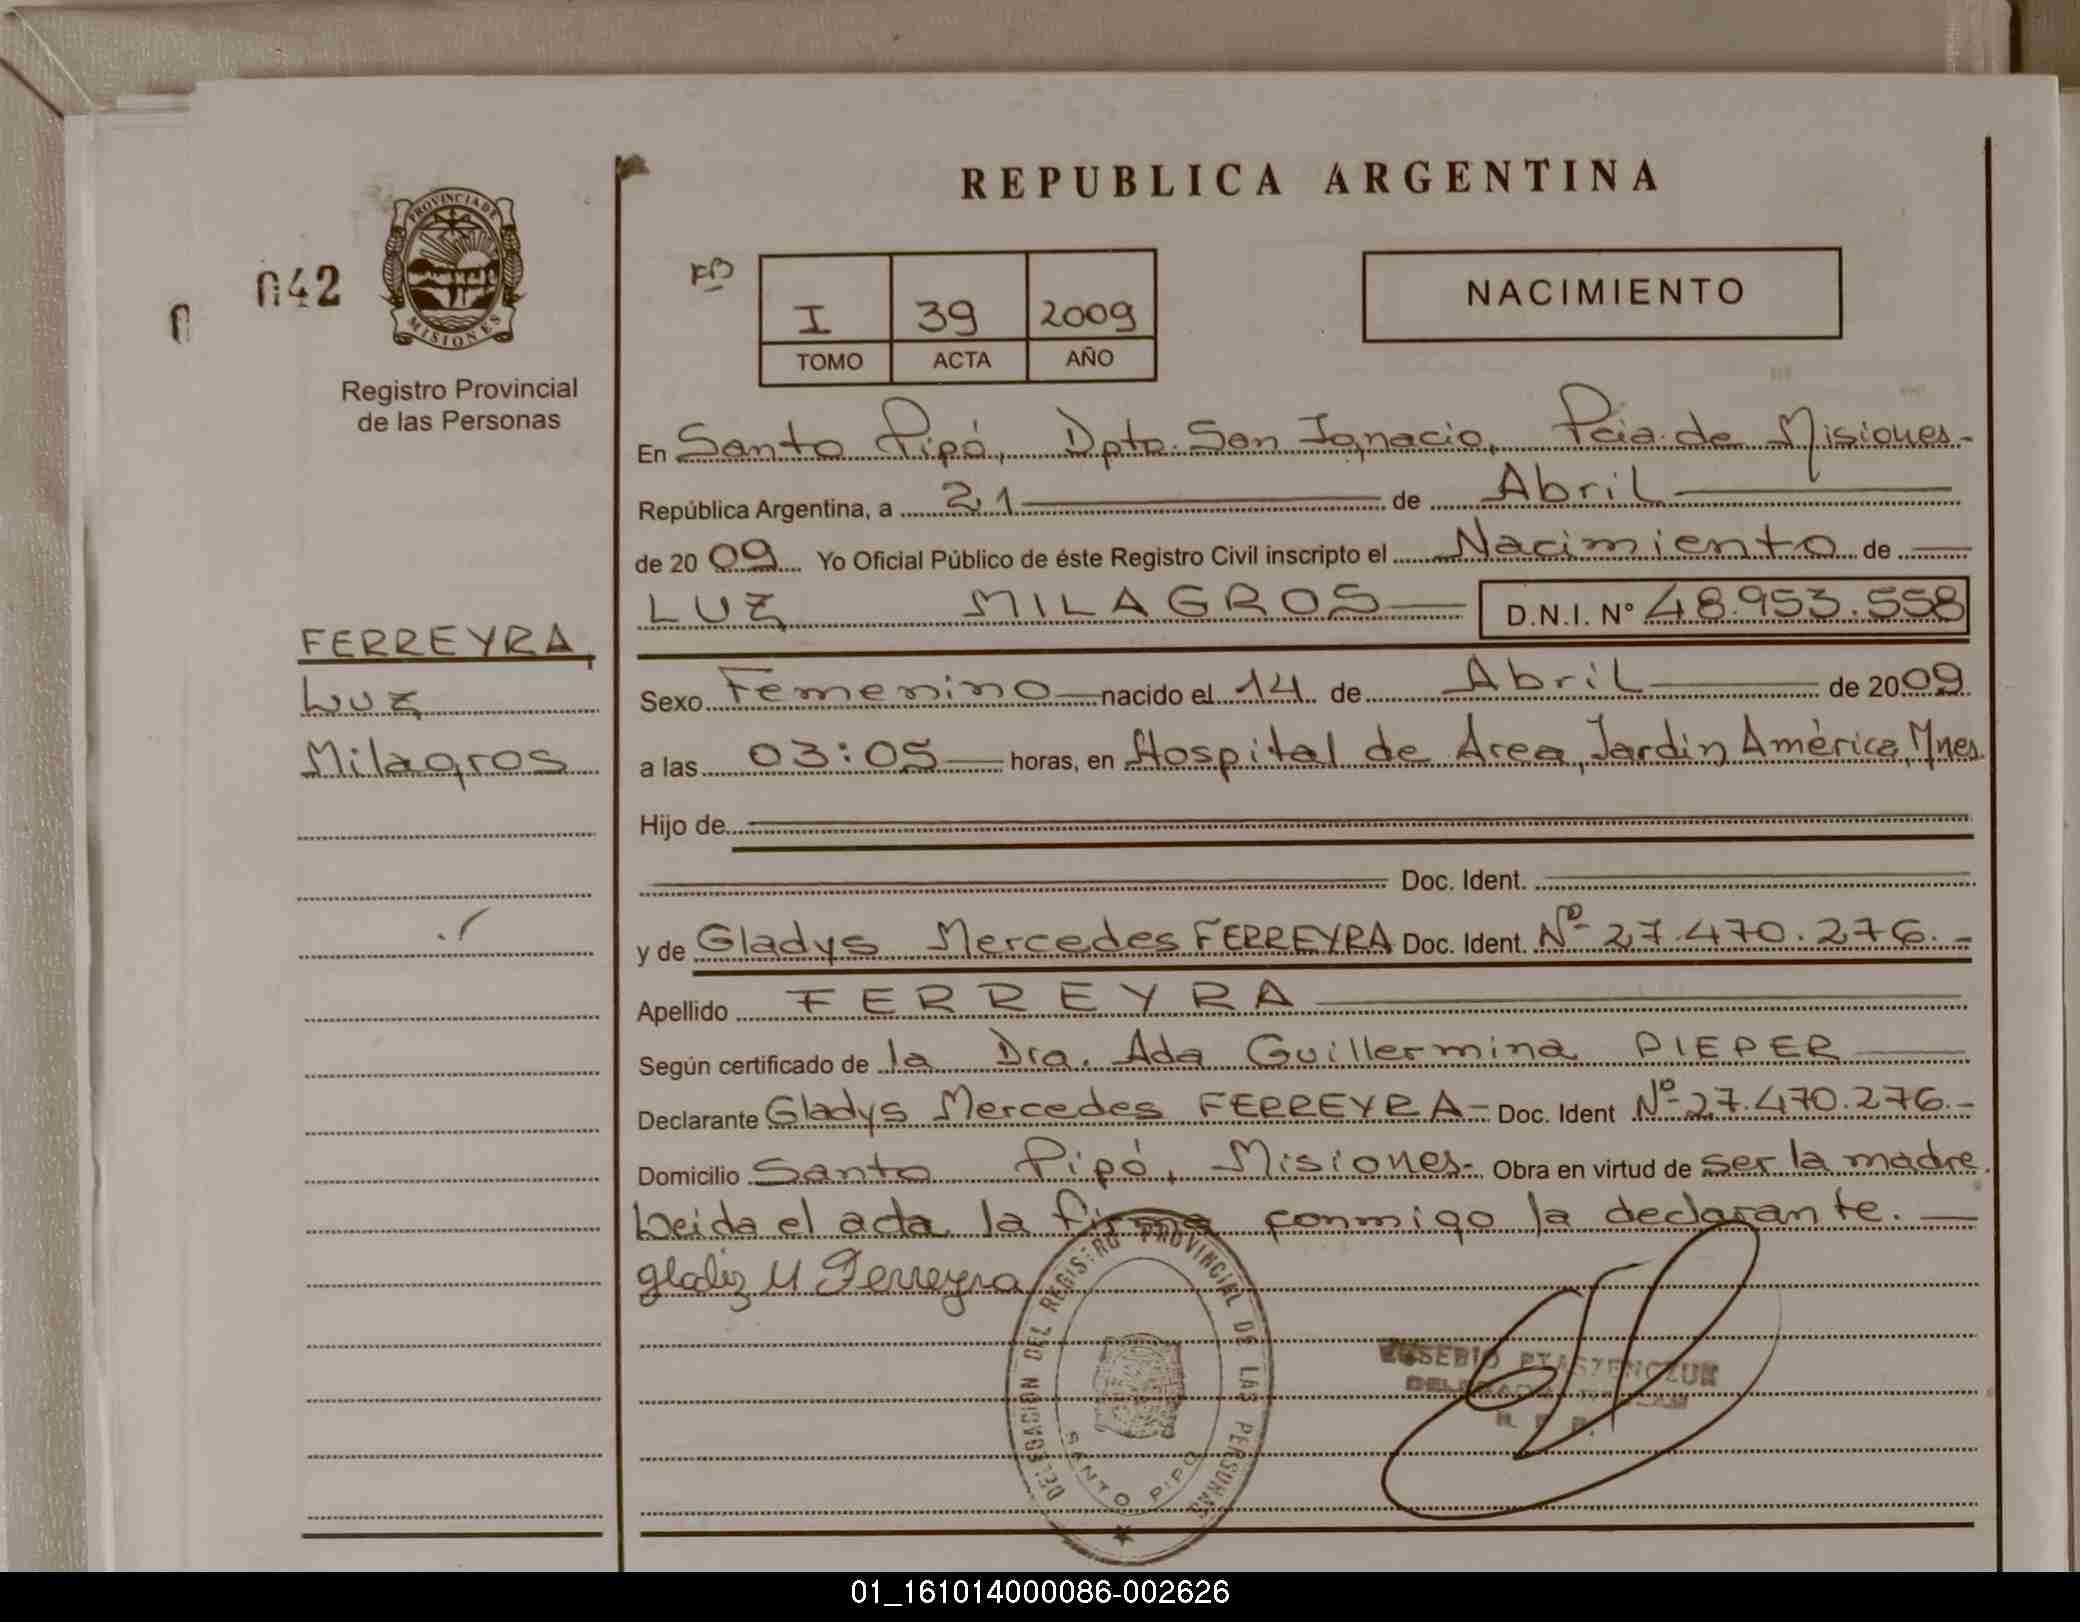 REPUBLICA ARGENTINA
PROVINCIA DE
MISIONES
042
Registro Provincial
de las Personas
I 39 2009
TOMO ACTA AÑO
NACIMIENTO
En Santo Pipó, Dpto. San Ignacio, Pcia. de Misiones-
República Argentina, a 21 de Abril
de 2009 Yo Oficial Público de éste Registro Civil inscripto el Nacimiento de
LUZ MILAGROS D.N.I. N° 48.953.558
FERREYRA,
Luz
Milagros
Sexo Femenino nacido el 14 de Abril de 2009
a las 03:05 horas, en Hospital de Area, Jardín América, Mnes.
Hijo de
Doc. Ident.
y de Gladys Mercedes FERREYRA Doc. Ident. Nº 27.470.276.-
Apellido FERREYRA
Según certificado de la Dra. Ada Guillermina PIEPER
Declarante Gladys Mercedes FERREYRA- Doc. Ident Nº 27.470.276.-
Domicilio Santo Pipó, Misiones- Obra en virtud de ser la madre.
Leida el acta la firma conmigo la declarante.
gladiz M Ferreyra
DELEGACION DEL REGISTRO PROVINCIAL DE LAS PERSONAS
SANTO PIPO
EUSEBIO PTASZENCZUK
01_161014000086-002626